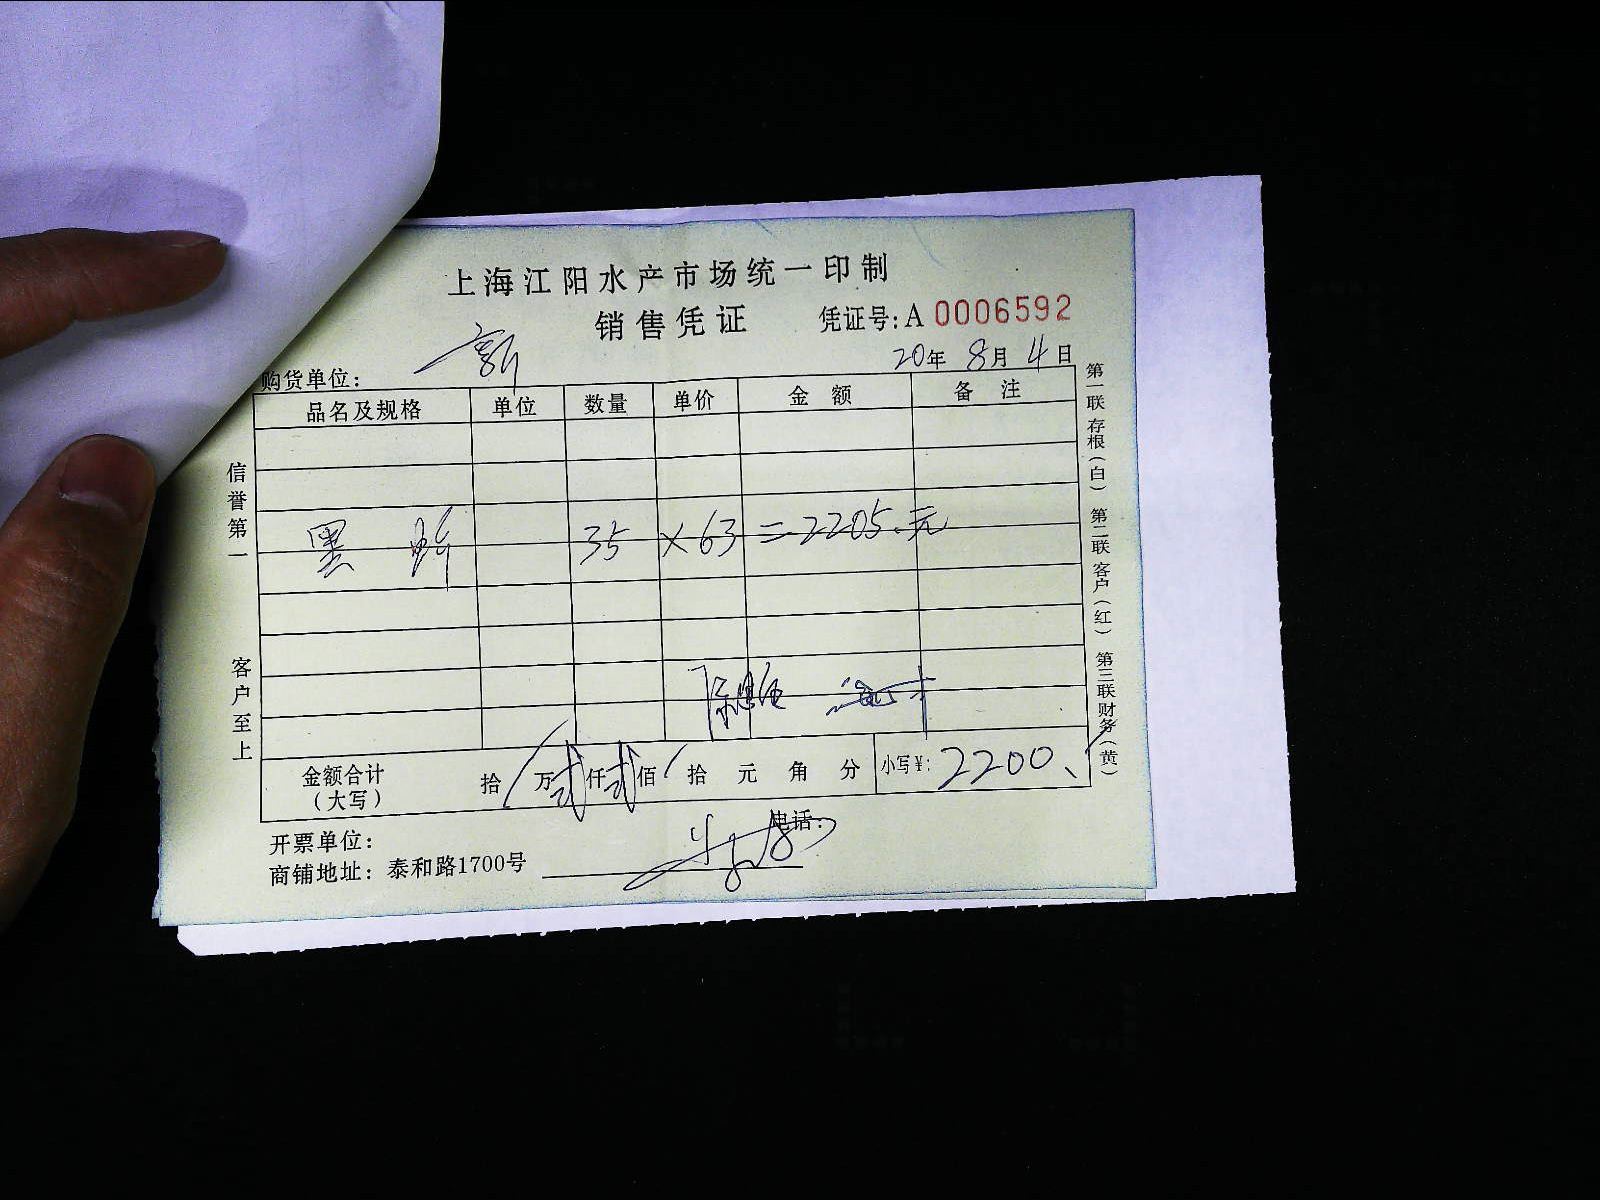 上海江阳水产市场统一印制
销售凭证 凭证号:A 0006592
20年 8月 4日
购货单位:
品名及规格 单位 数量 单价 金额 备注
黑 35 × 63 = 2205.元
金额合计(大写) 拾 / 万 贰 仟 贰 佰 / 拾 元 角 分 小写¥: 2200、
开票单位: 电话:
商铺地址: 泰和路1700号
信誉第一
客户至上
第一联存根(白) 第二联客户(红) 第三联财务(黄)